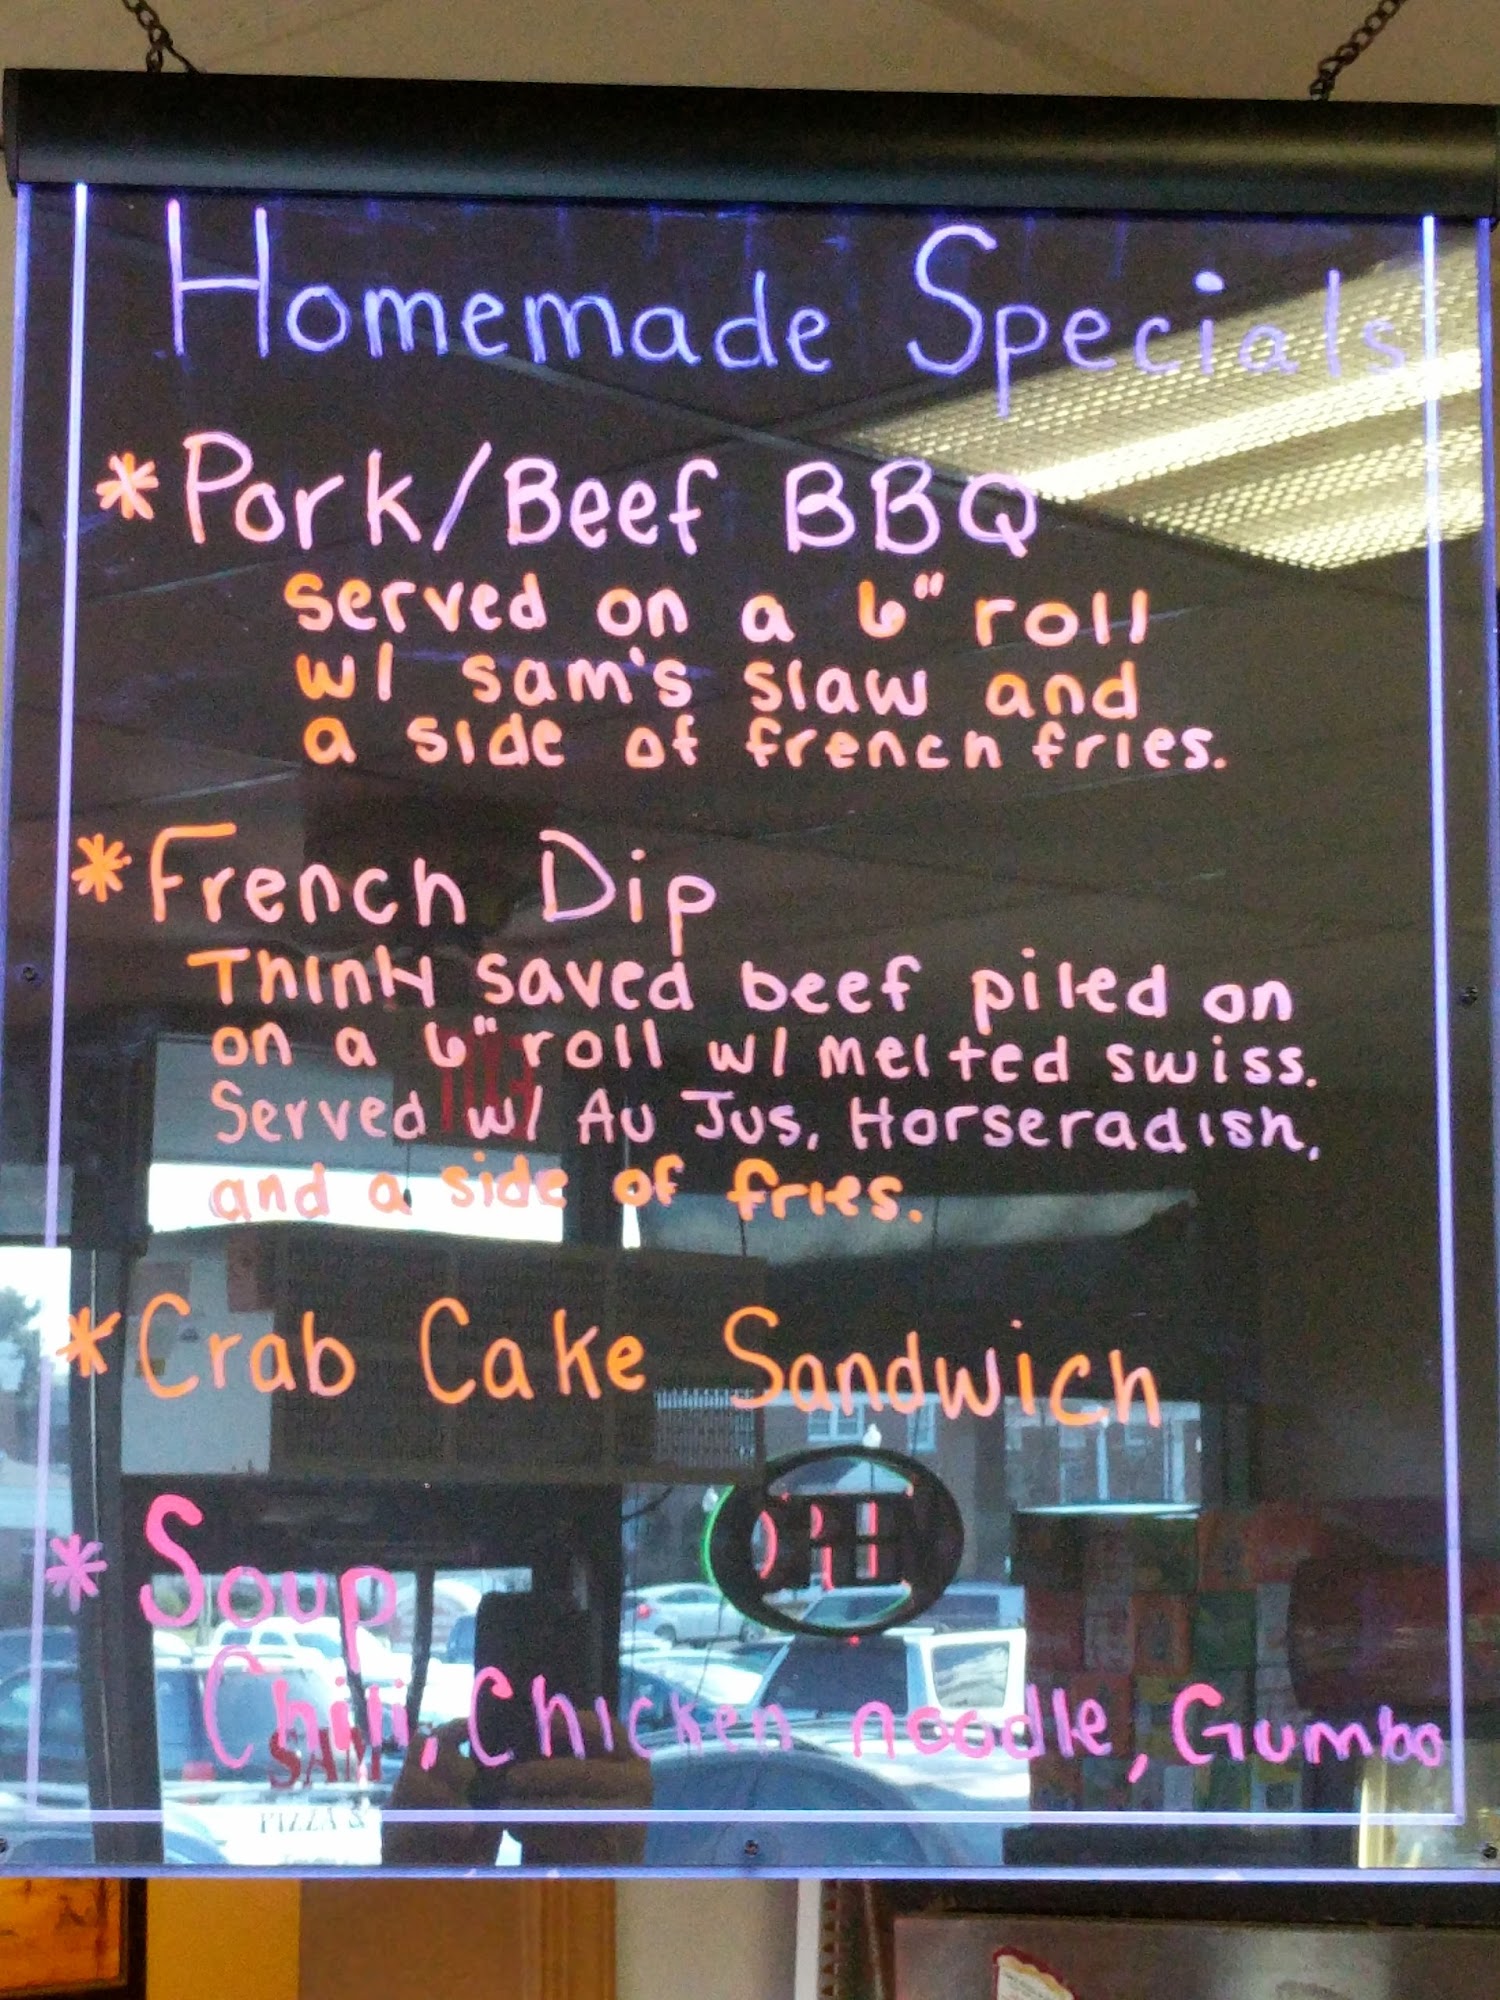 Homemade Specials
* Pork/Beef BBQ
served on a 6" roll
w/ sam's slaw and
a side of french fries.
* French Dip
Thinly saved beef piled on
on a 6" roll w/ melted swiss.
Served w/ Au Jus, Horseradish,
and a side of fries.
* Crab Cake Sandwich
* Soup
Chili, Chicken noodle, Gumbo
SAM
PIZZA &